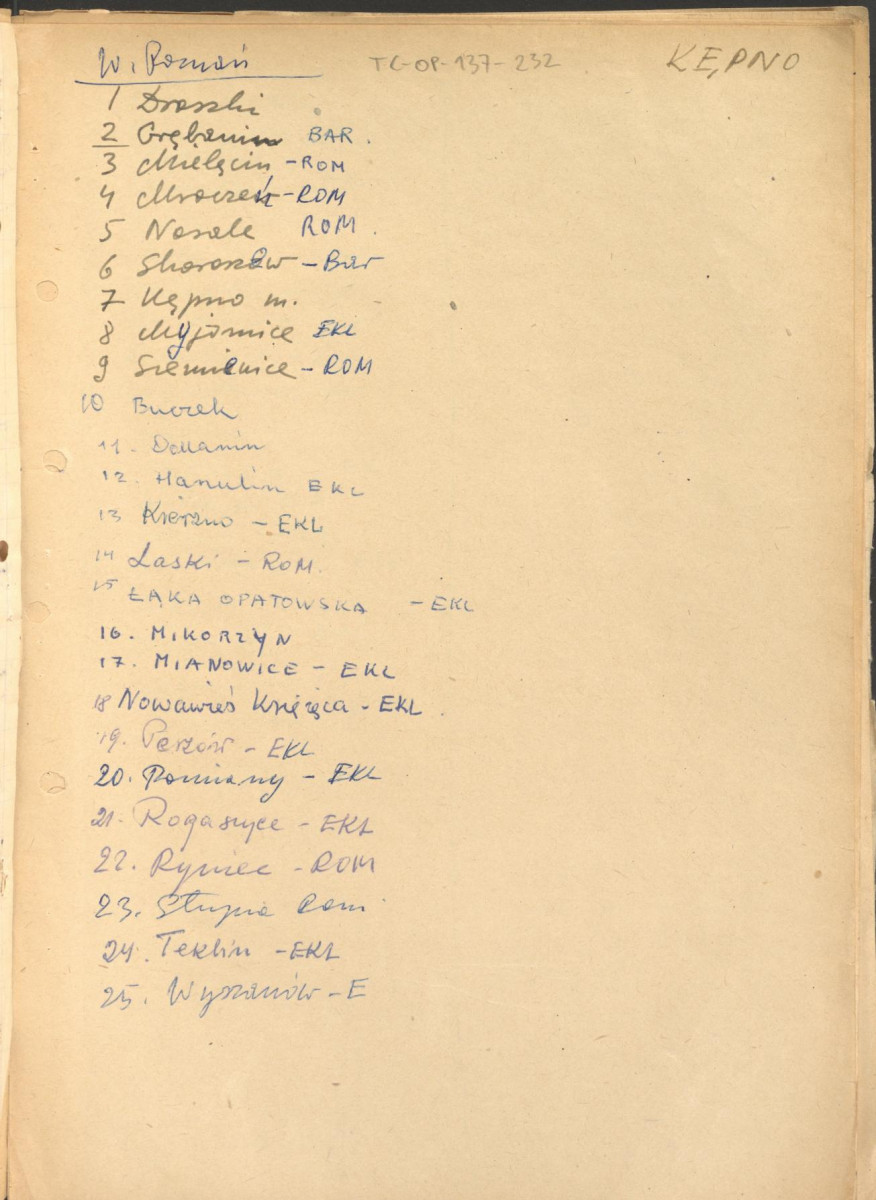 W. Poznań TG-OP-137-232 KĘPNO
1 Droszki
2 Grębanin BAR.
3 Mielęcin - ROM
4 Mroczeń - ROM
5 Nosale ROM.
6 Skoroszów - Bar
7 Kępno m.
8 Myjomice EKL
9 Siemienice - ROM
10 Buczek
11. Domanin
12. Hanulin EKL
13 Kierzno - EKL
14 Laski - ROM.
15 ŁĄKA OPATOWSKA - EKL
16. MIKORZYN
17. MIANOWICE - EKL
18 Nowawieś Książęca - EKL.
19. Perzów - EKL
20. Pomiany - EKL
21. Rogaszyce - EKL
22. Rypiec - ROM
23. Słupia Rom
24. Teklin - EKL
25. Wyszanów - E